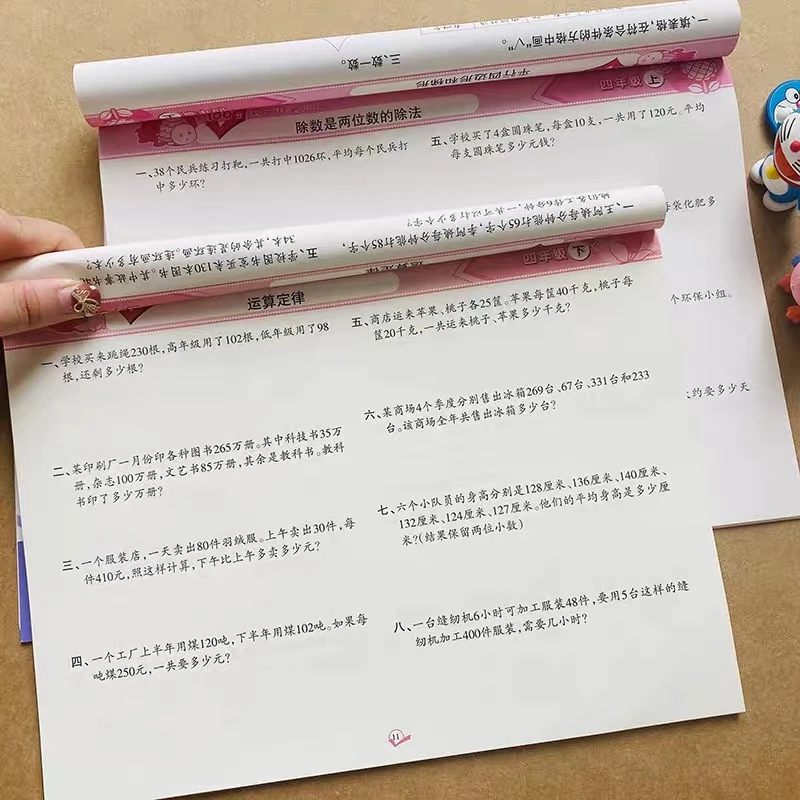 一、填表格,在符合条件的方格中画"√"。
三、数一数。
平行四边形和梯形
四年级 上
除数是两位数的除法
一、38个民兵练习打靶,一共打中1026环,平均每个民兵打
中多少环?
五、学校买了4盒圆珠笔,每盒10支,一共用了120元。平均
每支圆珠笔多少元钱?
袋化肥多
个环保小组。
约要多少天
一、王阿姨每分钟能打65个字,李阿姨每分钟能打85个字,
她们各工作6分钟,一共可以打多少个字?
五、学校图书室买来130本图书。其中故事书
34本,其余的是连环画。连环画有多少本?
四年级 下
运算定律
一、学校买来跳绳230根,高年级用了102根,低年级用了98
根,还剩多少根?
二、某印刷厂一月份印各种图书265万册。其中科技书35万
册,杂志100万册,文艺书85万册,其余是教科书。教科
书印了多少万册?
三、一个服装店,一天卖出80件羽绒服。上午卖出30件,每
件410元,照这样计算,下午比上午多卖多少元?
四、一个工厂上半年用煤120吨,下半年用煤102吨。如果每
吨煤250元,一共要多少元?
五、商店运来苹果、桃子各25筐。苹果每筐40千克,桃子每
筐20千克,一共运来桃子、苹果多少千克?
六、某商场4个季度分别售出冰箱269台、67台、331台和233
台。该商场全年共售出冰箱多少台?
七、六个小队员的身高分别是128厘米、136厘米、140厘米、
132厘米、124厘米、127厘米。他们的平均身高是多少厘
米?(结果保留两位小数)
八、一台缝纫机6小时可加工服装48件,要用5台这样的缝
纫机加工400件服装,需要几小时?
11